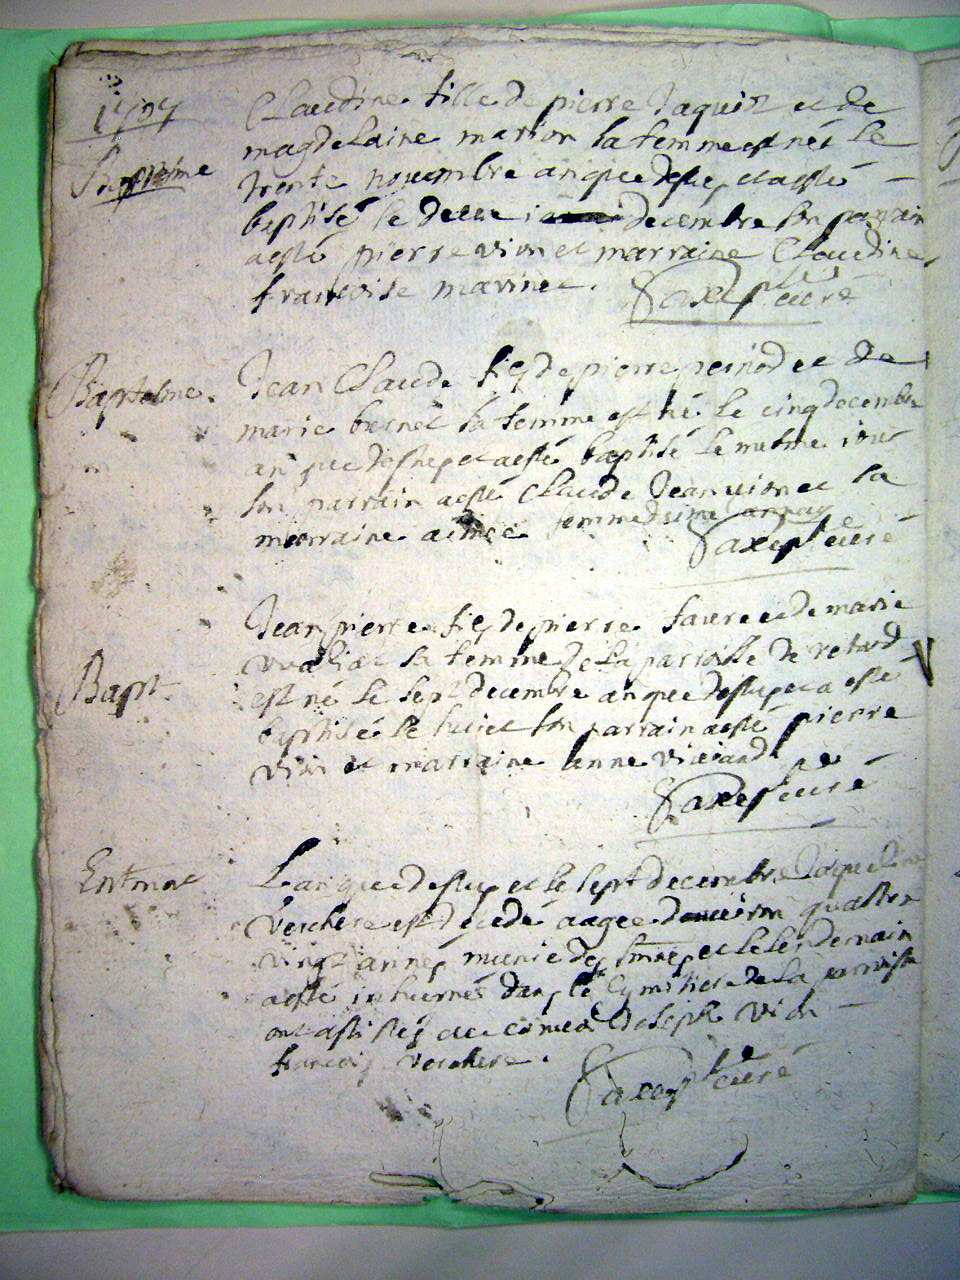 1727
Baptesme
Claudine fille de pierre Jaquin et de
magdelaine marion sa femme est née le
trente nouembre an que dessus et a esté
baptisée le decembre son parrain
a esté pierre vion et marraine Claudine
françoise
Saxe ptre curé
Baptesme.
Jean Claude fils de pierre pernod et de
marie bernet sa femme est né le cinq decembre
an que dessus et a esté baptisé le mesme iour
son parrain a esté Claude Jean vion et la
marraine aimée femme
Saxe ptre curé
Bapt.
Jean pierre fils de pierre faure et de marie
sa femme de la parroisse de
est né le sept decembre an que dessus et a esté
baptisé le huict son parrain a esté pierre
vion et marraine anne
Saxe ptre curé
Enterrement
L'an que dessus et le sept decembre Jaqueline
verchere est decedé aagée d'enuiron quattre
vingt années munie des et le lendemain
a esté inhumée dans le cymitiere de la parroisse
ont assistés au conuoi Joseph vion
françois verchere.
Saxe ptre curé